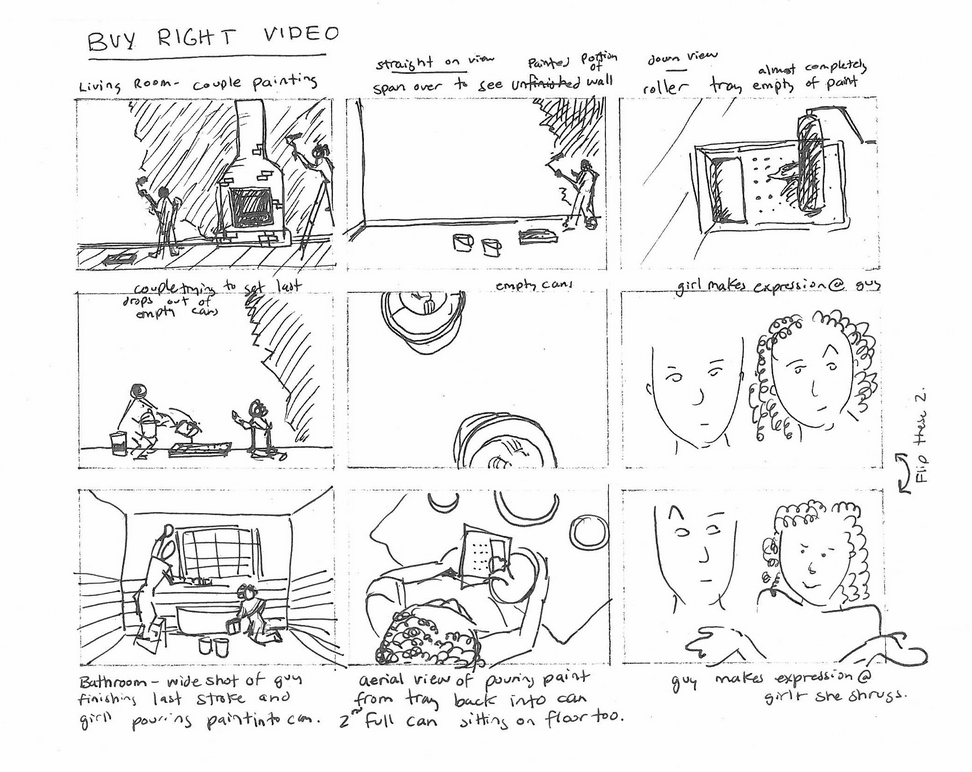 BUY RIGHT VIDEO
Living Room - couple painting
straight on view Painted Portion of
span over to see unfinished wall
down view
roller tray almost completely
empty of paint
couple trying to get last
drops out of
empty cans
empty cans
girl makes expression @ guy
Flip these 2.
Bathroom - wide shot of guy
finishing last stroke and
girl pouring paint into can.
aerial view of pouring paint
from tray back into can
2nd Full can sitting on floor too.
guy makes expression @
girl + she shrugs.